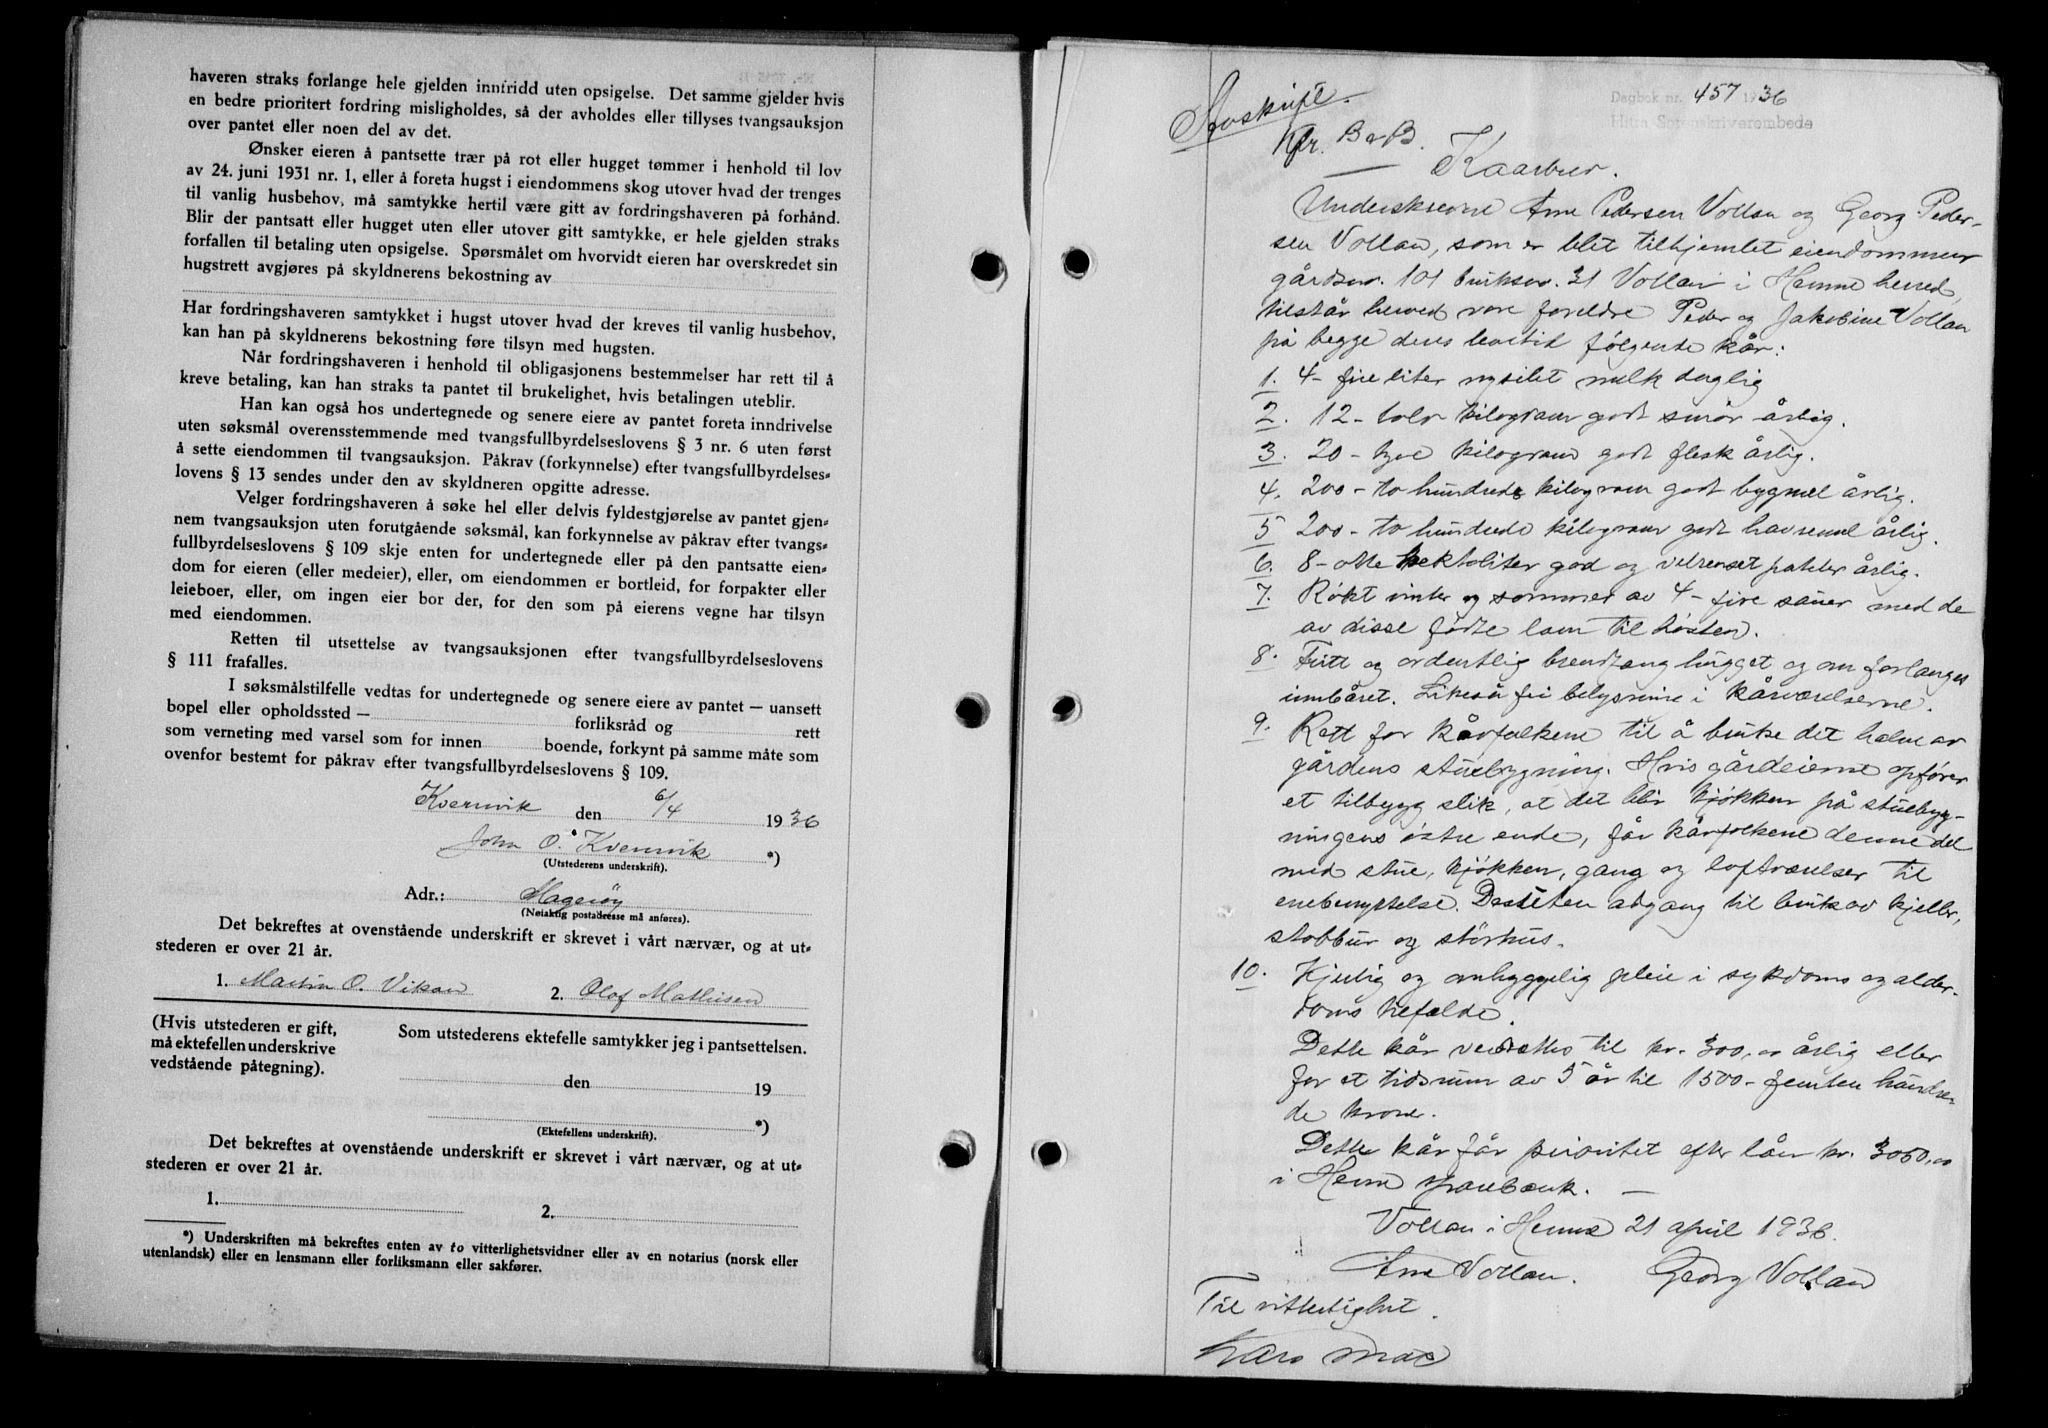 haveren straks forlange hele gjelden innfridd uten opsigelse. Det samme gjelder hvis
en bedre prioritert fordring misligholdes, så der avholdes eller tillyses tvangsauksjon
over pantet eller noen del av det.
Ønsker eieren å pantsette trær på rot eller hugget tømmer i henhold til lov
av 24. juni 1931 nr. 1, eller å foreta hugst i eiendommens skog utover hvad der trenges
til vanlig husbehov, må samtykke hertil være gitt av fordringshaveren på forhånd.
Blir der pantsatt eller hugget uten eller utover gitt samtykke, er hele gjelden straks
forfallen til betaling uten opsigelse. Spørsmålet om hvorvidt eieren har overskredet sin
hugstrett avgjøres på skyldnerens bekostning av
Har fordringshaveren samtykket i hugst utover hvad der kreves til vanlig husbehov,
kan han på skyldnerens bekostning føre tilsyn med hugsten.
Når fordringshaveren i henhold til obligasjonens bestemmelser har rett til å
kreve betaling, kan han straks ta pantet til brukelighet, hvis betalingen uteblir.
Han kan også hos undertegnede og senere eiere av pantet foreta inndrivelse
uten søksmål overensstemmende med tvangsfullbyrdelseslovens § 3 nr. 6 uten først
å sette eiendommen til tvangsauksjon. Påkrav (forkynnelse) efter tvangsfullbyrdelses-
lovens § 13 sendes under den av skyldneren opgitte adresse.
Velger fordringshaveren å søke hel eller delvis fyldestgjørelse av pantet gjen-
nem tvangsauksjon uten forutgående søksmål, kan forkynnelse av påkrav efter tvangs-
fullbyrdelseslovens § 109 skje enten for undertegnede eller på den pantsatte eien-
dom for eieren (eller medeier), eller, om eiendommen er bortleid, for forpakter eller
leieboer, eller, om ingen eier bor der, for den som på eierens vegne har tilsyn
med eiendommen.
Retten til utsettelse av tvangsauksjonen efter tvangsfullbyrdelseslovens
§ 111 frafalles.
I søksmålstilfelle vedtas for undertegnede og senere eiere av pantet — uansett
bopel eller opholdssted — forliksråd og rett
som verneting med varsel som for innen boende, forkynt på samme måte som
ovenfor bestemt for påkrav efter tvangsfullbyrdelseslovens § 109.
Kvernvik den 6/4 1936
John O. Kvernvik *)
(Utstederens underskrift).
Adr.: Magerøy
(Nøiaktig postadresse må anføres).
Det bekreftes at ovenstående underskrift er skrevet i vårt nærvær, og at ut-
stederen er over 21 år.
1. Martin O. Vikan 2. Olof Mathisen
(Hvis utstederen er gift,
må ektefellen underskrive
vedstående påtegning).
Som utstederens ektefelle samtykker jeg i pantsettelsen.
den 19
*)
(Ektefellens underskrift).
Det bekreftes at ovenstående underskrift er skrevet i vårt nærvær, og at ut-
stederen er over 21 år.
1. 2.
*) Underskriften må bekreftes enten av to vitterlighetsvidner eller av en notarius (norsk eller
utenlandsk) eller en lensmann eller forliksmann eller sakfører.
Avskrift.
Dagbok nr. 457 1936
Hitra Sorenskriverembede
Kr. B & B.
Kaarbrev.
Underskrevne Arne Pedersen Vollan og Georg Peder-
sen Vollan, som er blet tilhjemlet eiendommen
gårdsnr. 101 bruksnr. 31 Vollan i Hemne herred,
tilstår herved vore foreldre Peder og Jakobine Vollan
på begge deres levetid følgende kår:
1. 4 - fire liter nysilet melk daglig
2. 12 - tolv kilogram godt smør årlig.
3. 20 - tyve kilogram godt flesk årlig.
4. 200 - to hundrede kilogram godt bygmel årlig.
5 200 - to hundrede kilogram godt havremel årlig.
6. 8 - otte hektoliter god og velrenset poteter årlig.
7. Røkt vinter og sommer av 4 - fire sauer med de
av disse fødte lam til høsten.
8. Fritt og ordentlig brendfang hugget og om forlanges
innbåret. Likeså fri belysning i kårværelserne.
9. Rett for kårfolkene til å bruke det halve av
gårdens stuebygning. Hvis gårdeierne opfører
et tilbygg slik, at det blir kjøkken på stuebyg-
ningens østre ende, får kårfolkene denne del
med stue, kjøkken, gang og loftværelser til
enebenyttelse. Desuten adgang til bruk av kjeller,
stabbur og størhus.
10. Kjerlig og omhyggelig pleie i sykdoms og alder-
doms tilfelde.
Dette kår verdsettes til kr. 300,00 årlig eller
for et tidsrum av 5 år til 1500 - femten hundre-
de kroner.
Dette kår får prioritet efter lån kr. 3000,00
i Hemne sparebank. —
Vollan i Hemne 21 april 1936.
Arne Vollan. Georg Vollan
Til vitterlighet.